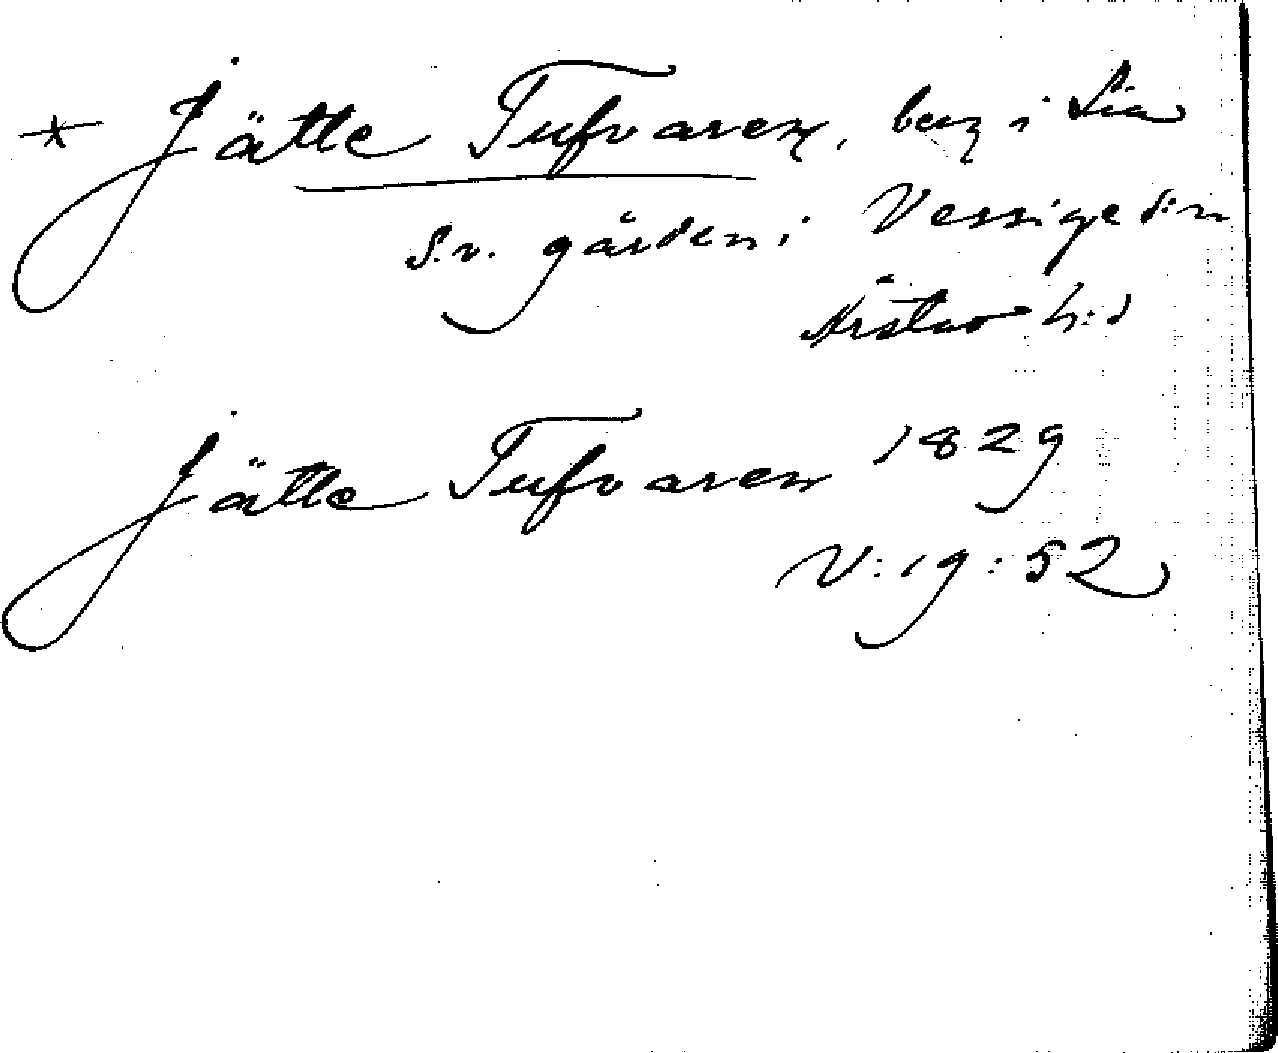 * Jätte Tufvaren, berg i Lia
S. v. gården i Vessige s:n
Årstad h:d
Jätte Tufvaren 1829
V:19:52